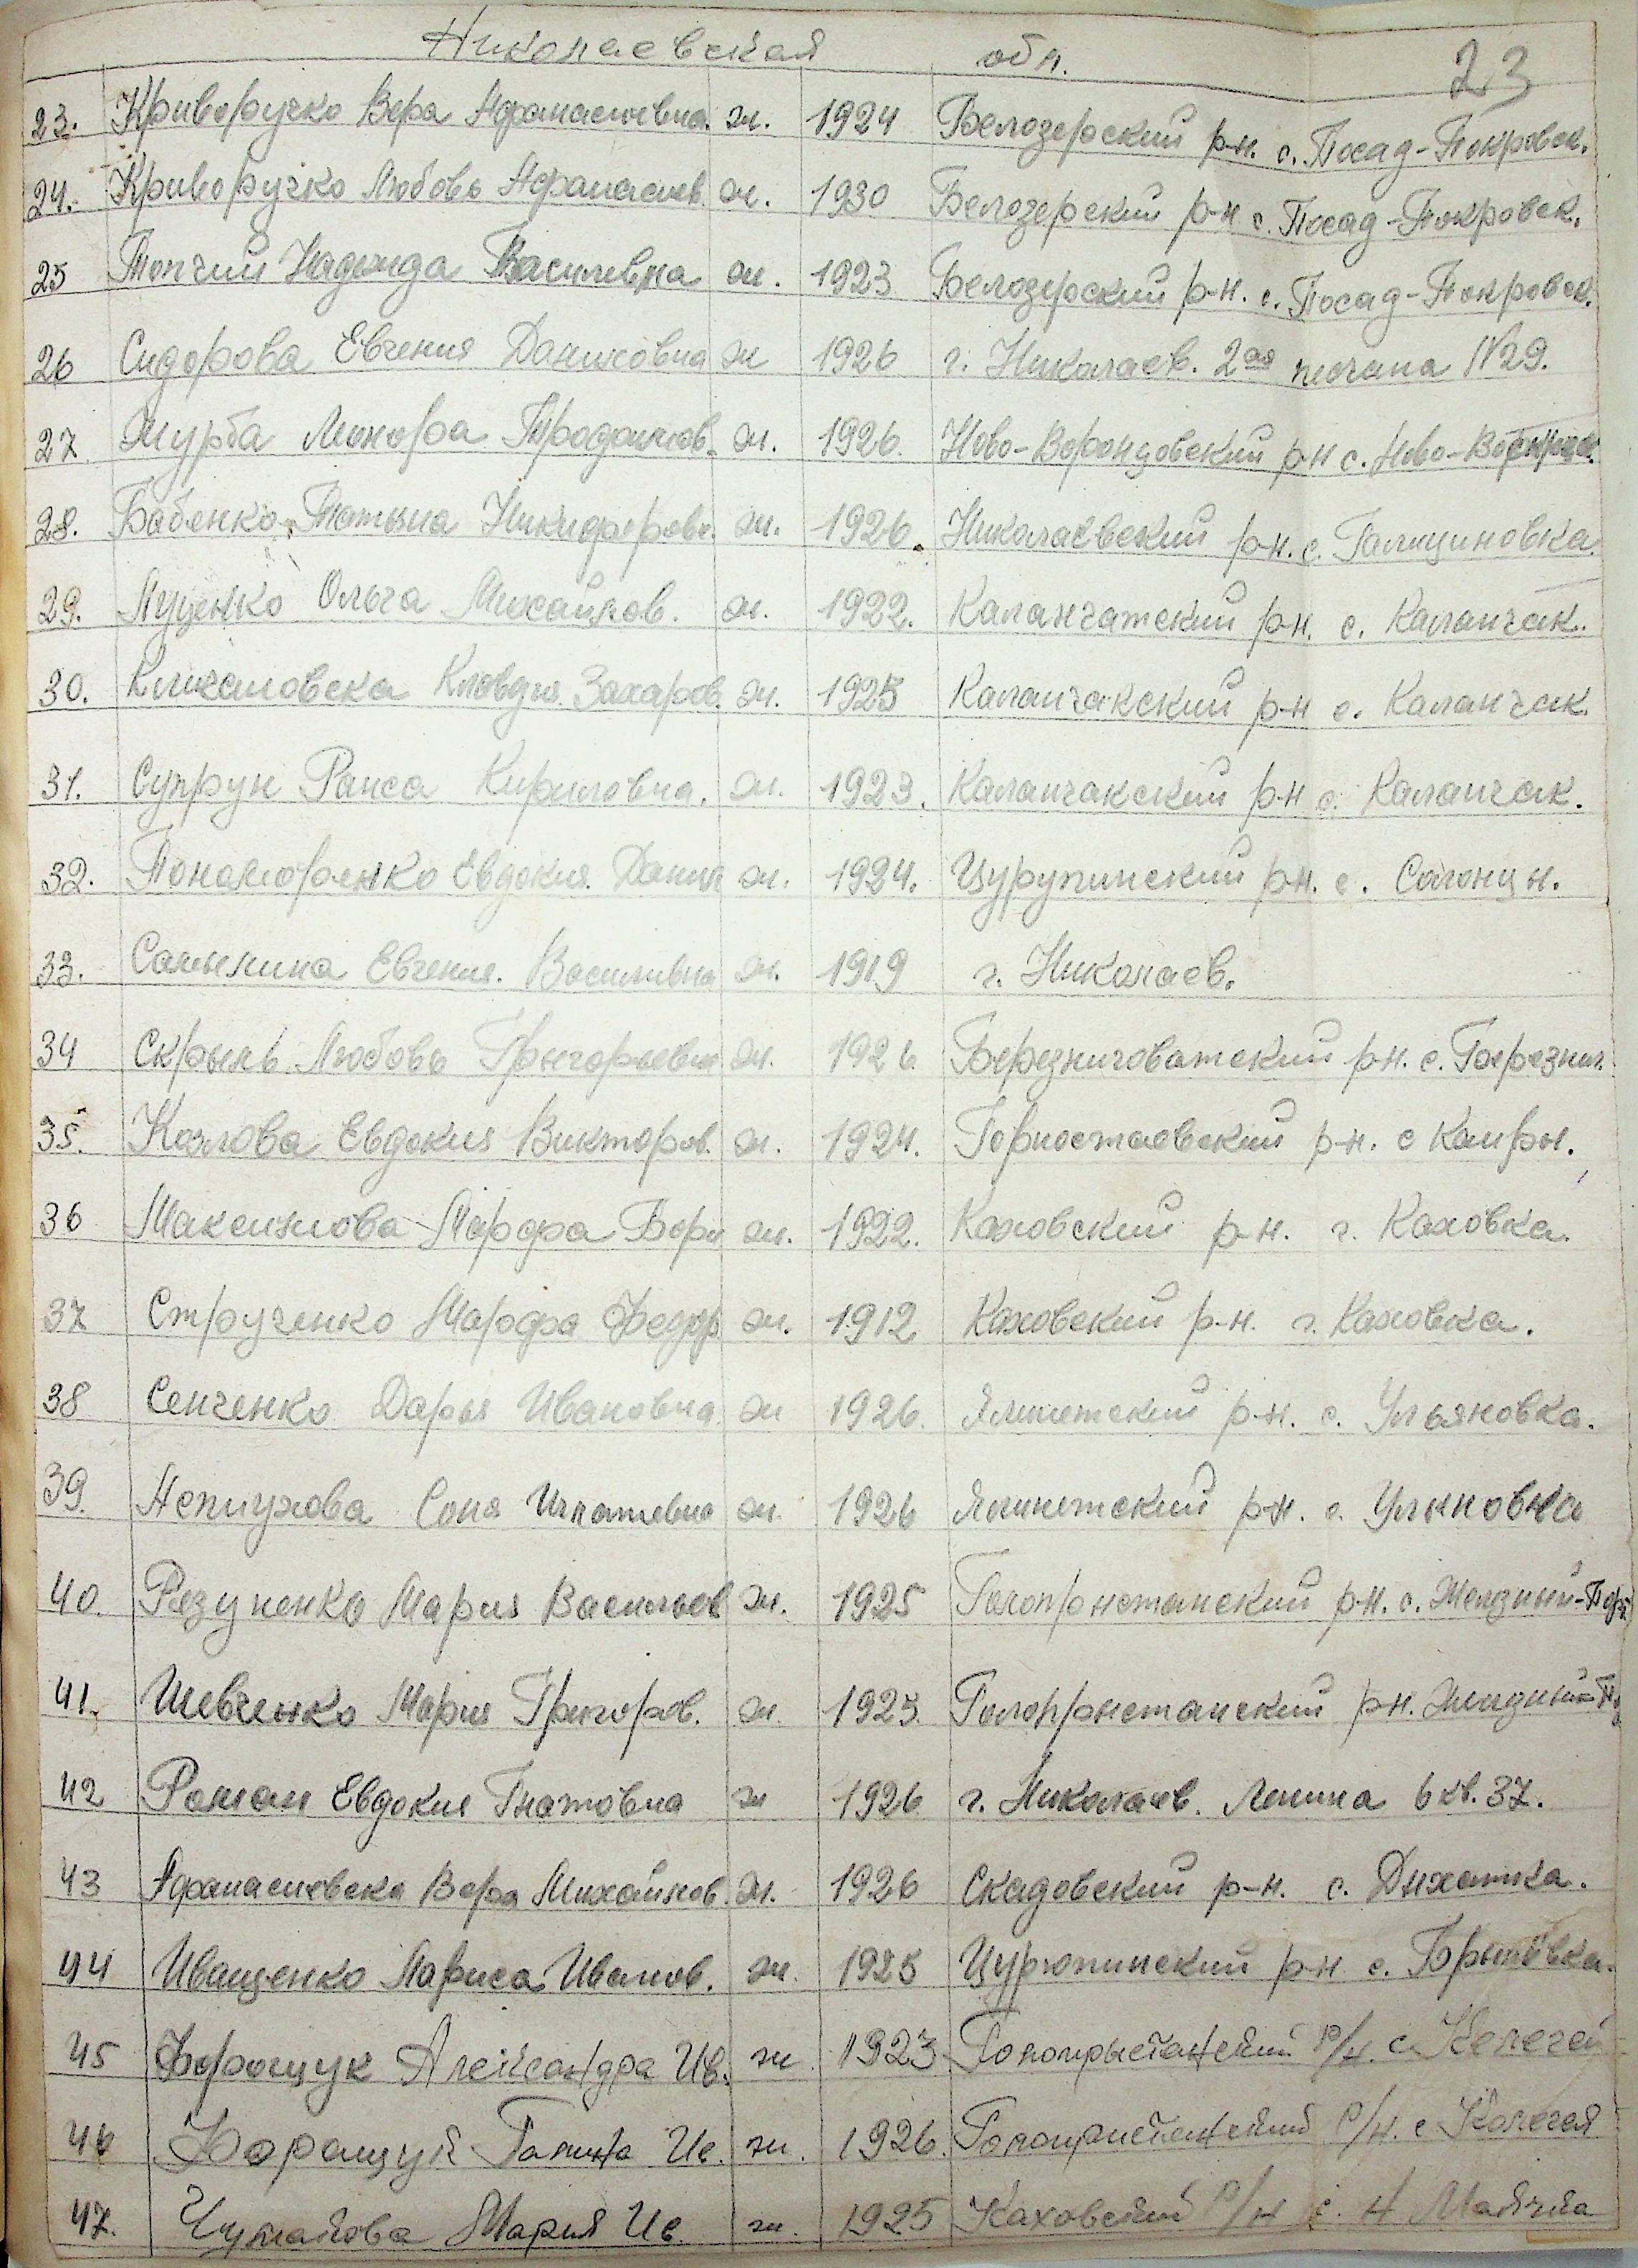 Николаевская обл. 23
23. Криворучко Вера Афанасиевна. ж. 1924 Белозерский р-н. с. Посад-Покровск.
24. Криворучко Любовь Афанасиев. ж. 1930 Белозерский р-н с. Посад-Покровск.
25 Топчий Надежда Василевна ж. 1923 Белозерский р-н. с. Посад-Покровск.
26 Сидорова Евгения Даниловна ж 1926 г. Николаев. 2ая песчана №29.
27. Журба Продан. ж. 1926. Ново-Воронцовский р-н с. Ново-Воронцов.
28. Бабенко Татьяна Никифоровн. ж. 1926. Николаевский р-н. с. Галициновка.
29. Луценко Ольга Михайлов. ж. 1922. Каланчатский р-н. с. Каланчак.
30. Клавдия Захаров. ж. 1925 Каланчакский р-н с. Каланчак.
31. Супрун Раиса Кириловна. ж. 1923. Каланчакский р-н с. Каланчак.
32. Пономоренко Евдокия Данил ж. 1924. Цурупинский р-н. с. Солонцы.
33. Евгения. Василивна ж. 1919 г. Николаев.
34 Скрыль Любовь Грыгорьевна ж. 1926. Березниговатский р-н. с. Березниг.
35. Козлова Евдокия Викторов. ж. 1924. Горностаевский р-н. с Каиры.
36 Максимова Марфа Бори ж. 1922. Каховский р-н. г. Каховка.
37 Струченко Марфа Федор ж. 1912 Каховский р-н. г. Каховка.
38 Сенченко Дарья Ивановна ж 1926. р-н. с. Ульяновка.
39. Соня Игнатевна ж. 1926 р-н. с. Уляновка
40. Резуненко Мария Васильов ж. 1925 Голопрыстанский р-н. с. Желзный-Порт
41. Шевченко Мария Григоров. ж. 1925. Голопрыстанский р-н. Желзный-П
42 Роман Евдокия Гнатовна ж 1926 г. Николаев. Ленина 6 кв. 37.
43 Афанасиевска Вера Михайлов. ж. 1926 Скадовский р-н. с.
44 Иващенко Лариса Иванов. ж. 1925 Цурюпинский р-н с. Брытовка.
45 Борощук Александра Ив. ж. 1923 Голопрыстанский р/н. с. Келегей
46 Борощук Галина Ив. ж. 1926. Голопристанский р/н. с Келегей
47. Чумакова Мария Ив. ж. 1925 Каховский р/н с. Н Маячка